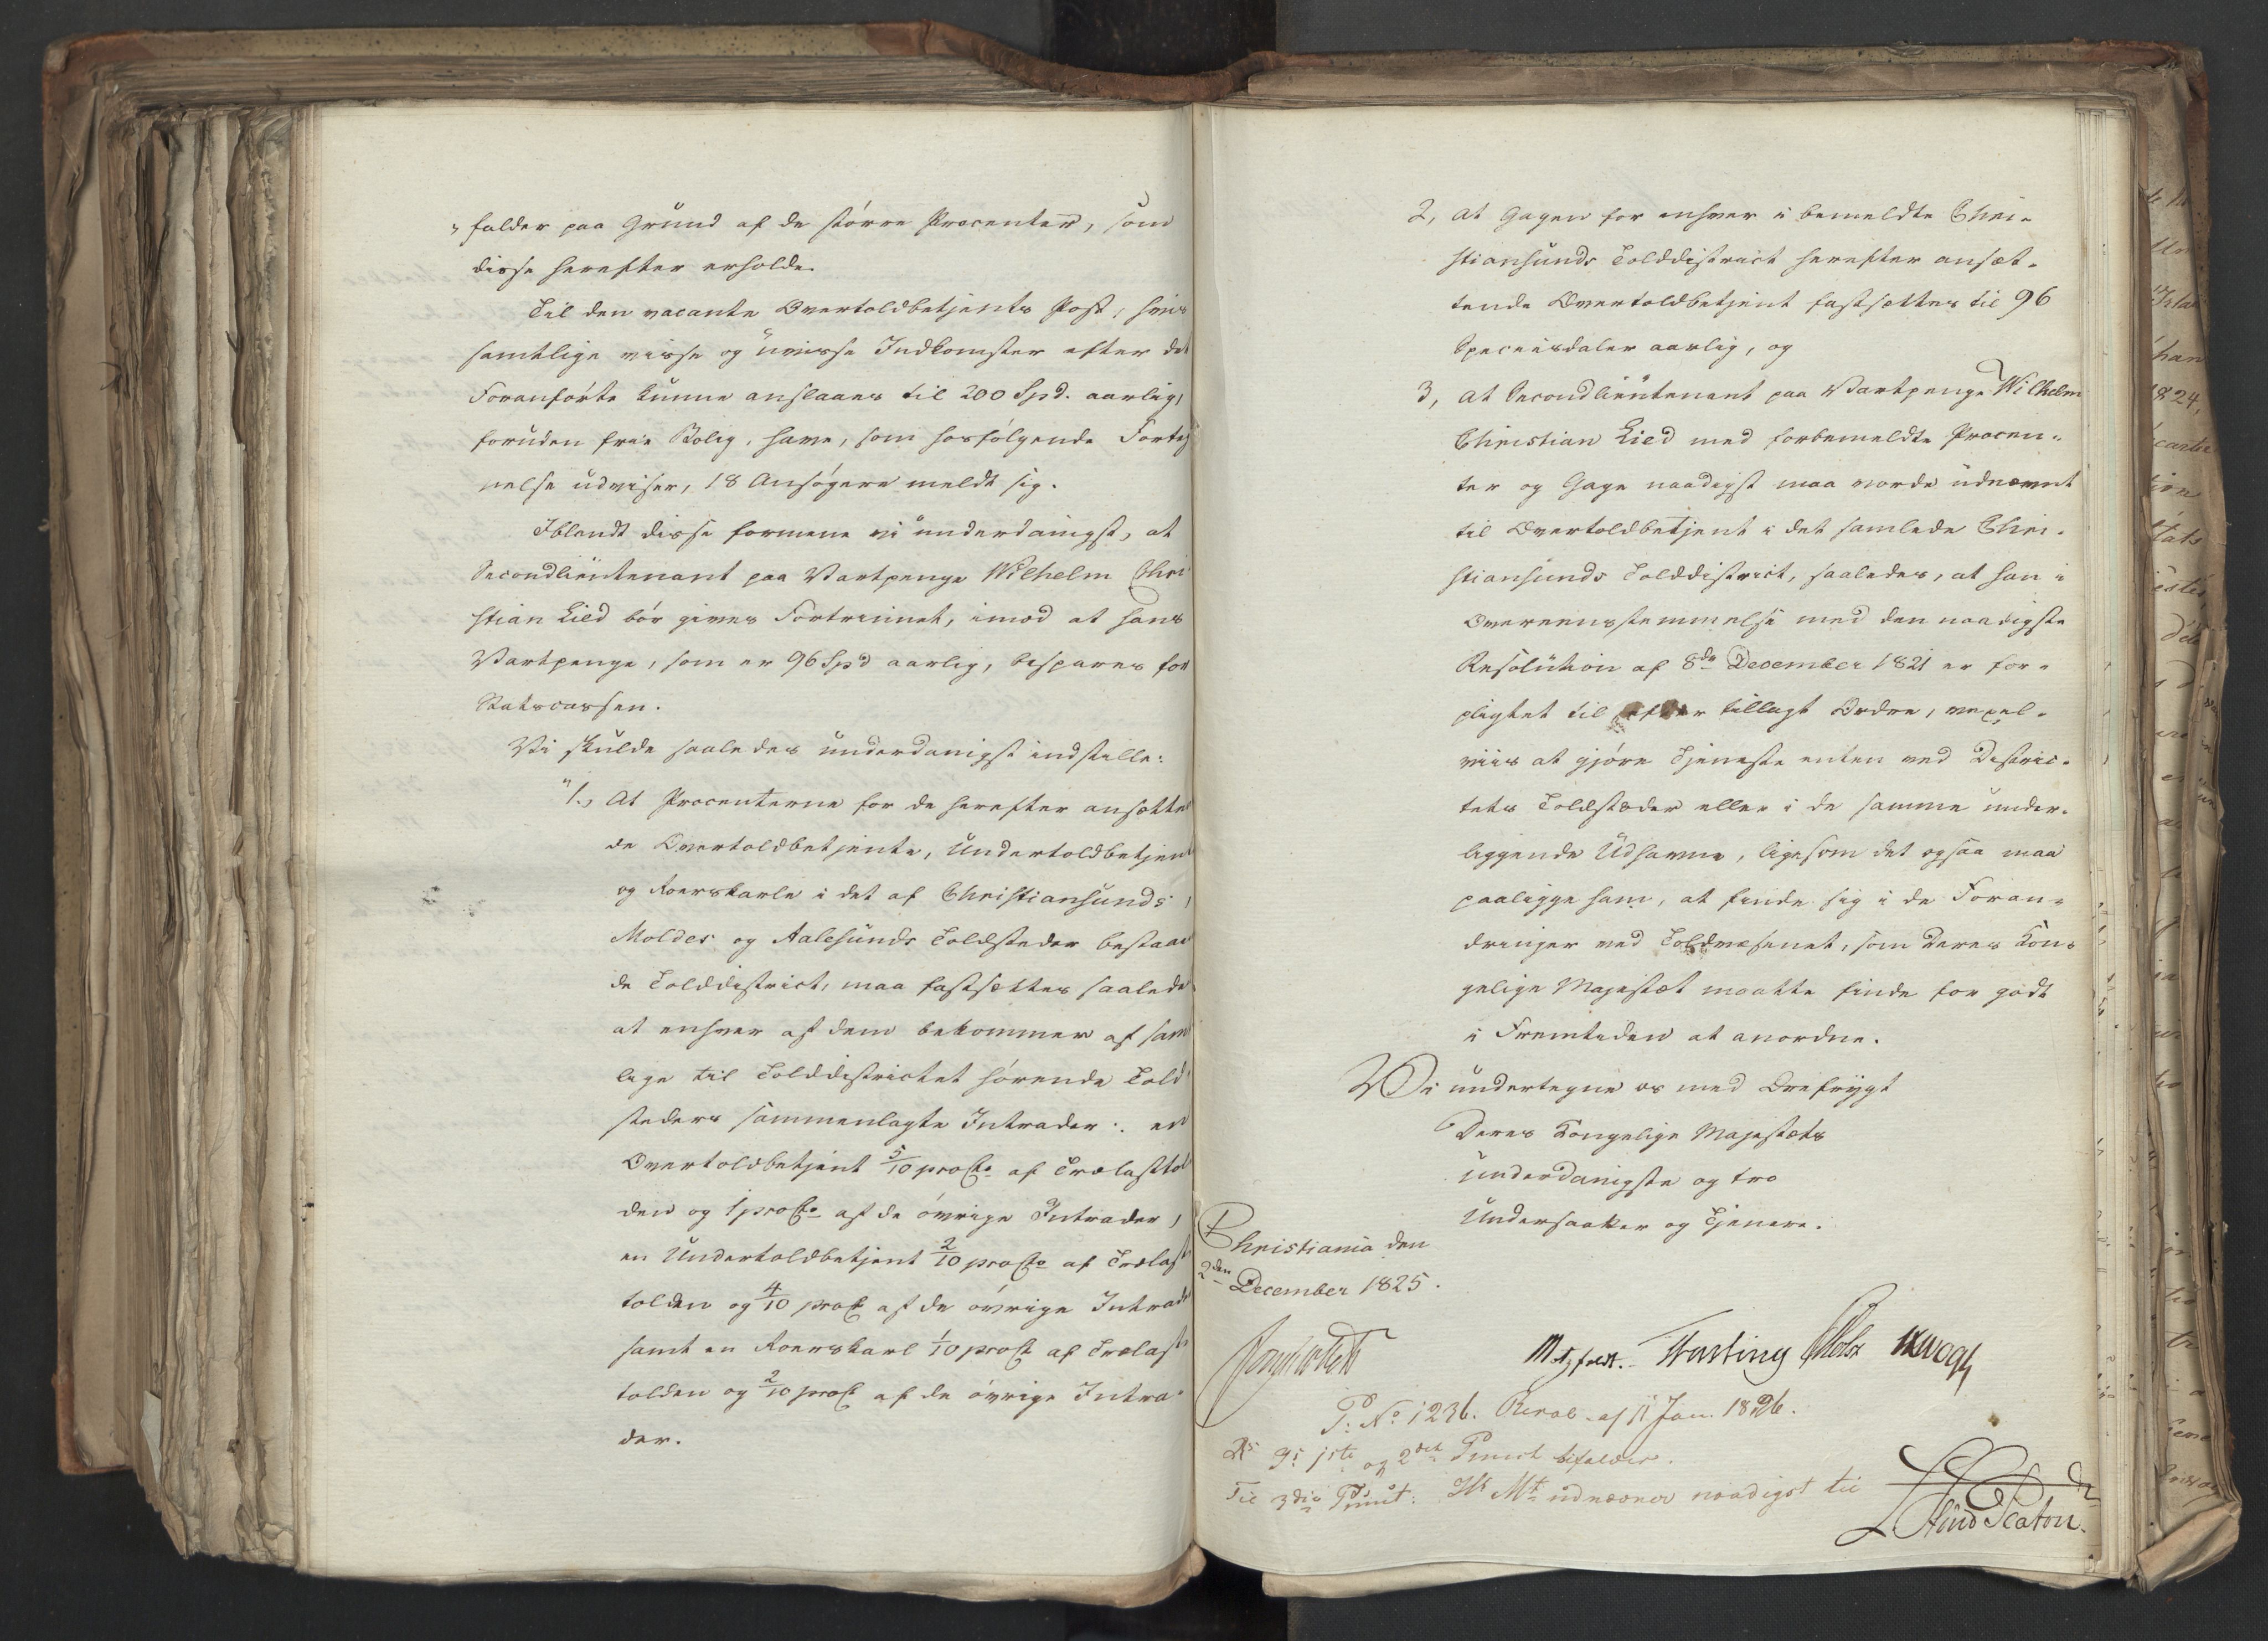 falder paa Grund af de større Procenter, som
disse herefter erholde.
Til den vacante Overtoldbetjents Post, hvis
samtlige visse og uvisse Indkomster efter det
Foranførte kunne anslaaes til 200 Spd. aarlig,
foruden frie Bolig, have, som hosfølgende Forteg
nelse udviser, 18 Ansøgere meldt sig.
Iblandt disse formene vi underdanigst, at
Secondlieutenant paa Vartpenge Wilhelm Chri
stian Lied bør gives Fortrinnet, imod at hans
Vartpenge, som er 96 Spd aarlig, bespares for
Statscassen.
Vi skulde saaledes underdanigst indstille:
"1., At Procenterne for de herefter ansætten
de Overtoldbetjente, Undertoldbetjente
og Roerskarle i det af Christiansunds,
Moldes og Aalesunds Toldsteder bestaaen
de Tolddistrict, maa fastsættes saaledes
at enhver af dem bekommer af samt
lige til Tolddistrictet hørende Told
steders sammenlagte Intrader: en
Overtoldbetjent 5/10 proCto af Trælasttol
den og 1 proCto af de øvrige Intrader,
en Undertoldbetjent 2/10 proCto af Trælast
tolden og 4/10 proCt af de øvrige Intrader
samt en Roerskarl 1/10 proCt af Trælast
tolden og 2/10 proCt af de øvrige Intra-
der.
2, at Gagen for enhver i bemeldte Chri-
stiansunds Tolddistrict herefter ansæt-
tende Overtoldbetjent fastsættes til 96
Speciesdaler aarlig, og
3, at Secondlieutenant paa Vartpenge Wilhelm
Christian Lied med forbemeldte Procen-
ter og Gage naadigst maa vorde udnævnt
til Overtoldbetjent i det samlede Chri-
stiansunds Tolddistrict, saaledes, at han i
Overeensstemmelse med den naadigste
Resolution af 8de December 1821 er for-
pligtet til efter tillagt Ordre, vexel-
viis at gjøre Tjeneste enten ved Distric-
tets Toldsteder eller i de samme under-
liggende Udhavne, ligesom det ogsaa maa
paaligge ham, at finde sig i de Foran-
dringer ved Toldvæsenet, som Deres Kon-
gelige Majestæt maatte finde for godt
i Fremtiden at anordne.
Vi undertegne os med Ærefrygt
Deres Kongelige Majestæts
underdanigste og tro
Undersaatter og Tjenere.
Christiania den
2den December 1825.
Motzfeldt. Fasting Holst
P: No 1236. Resol. af 11 Jan. 1826.
1ste og 2det Punct bifaldes.
Til 3die Punct: Hs Mt udnævner naadigst til